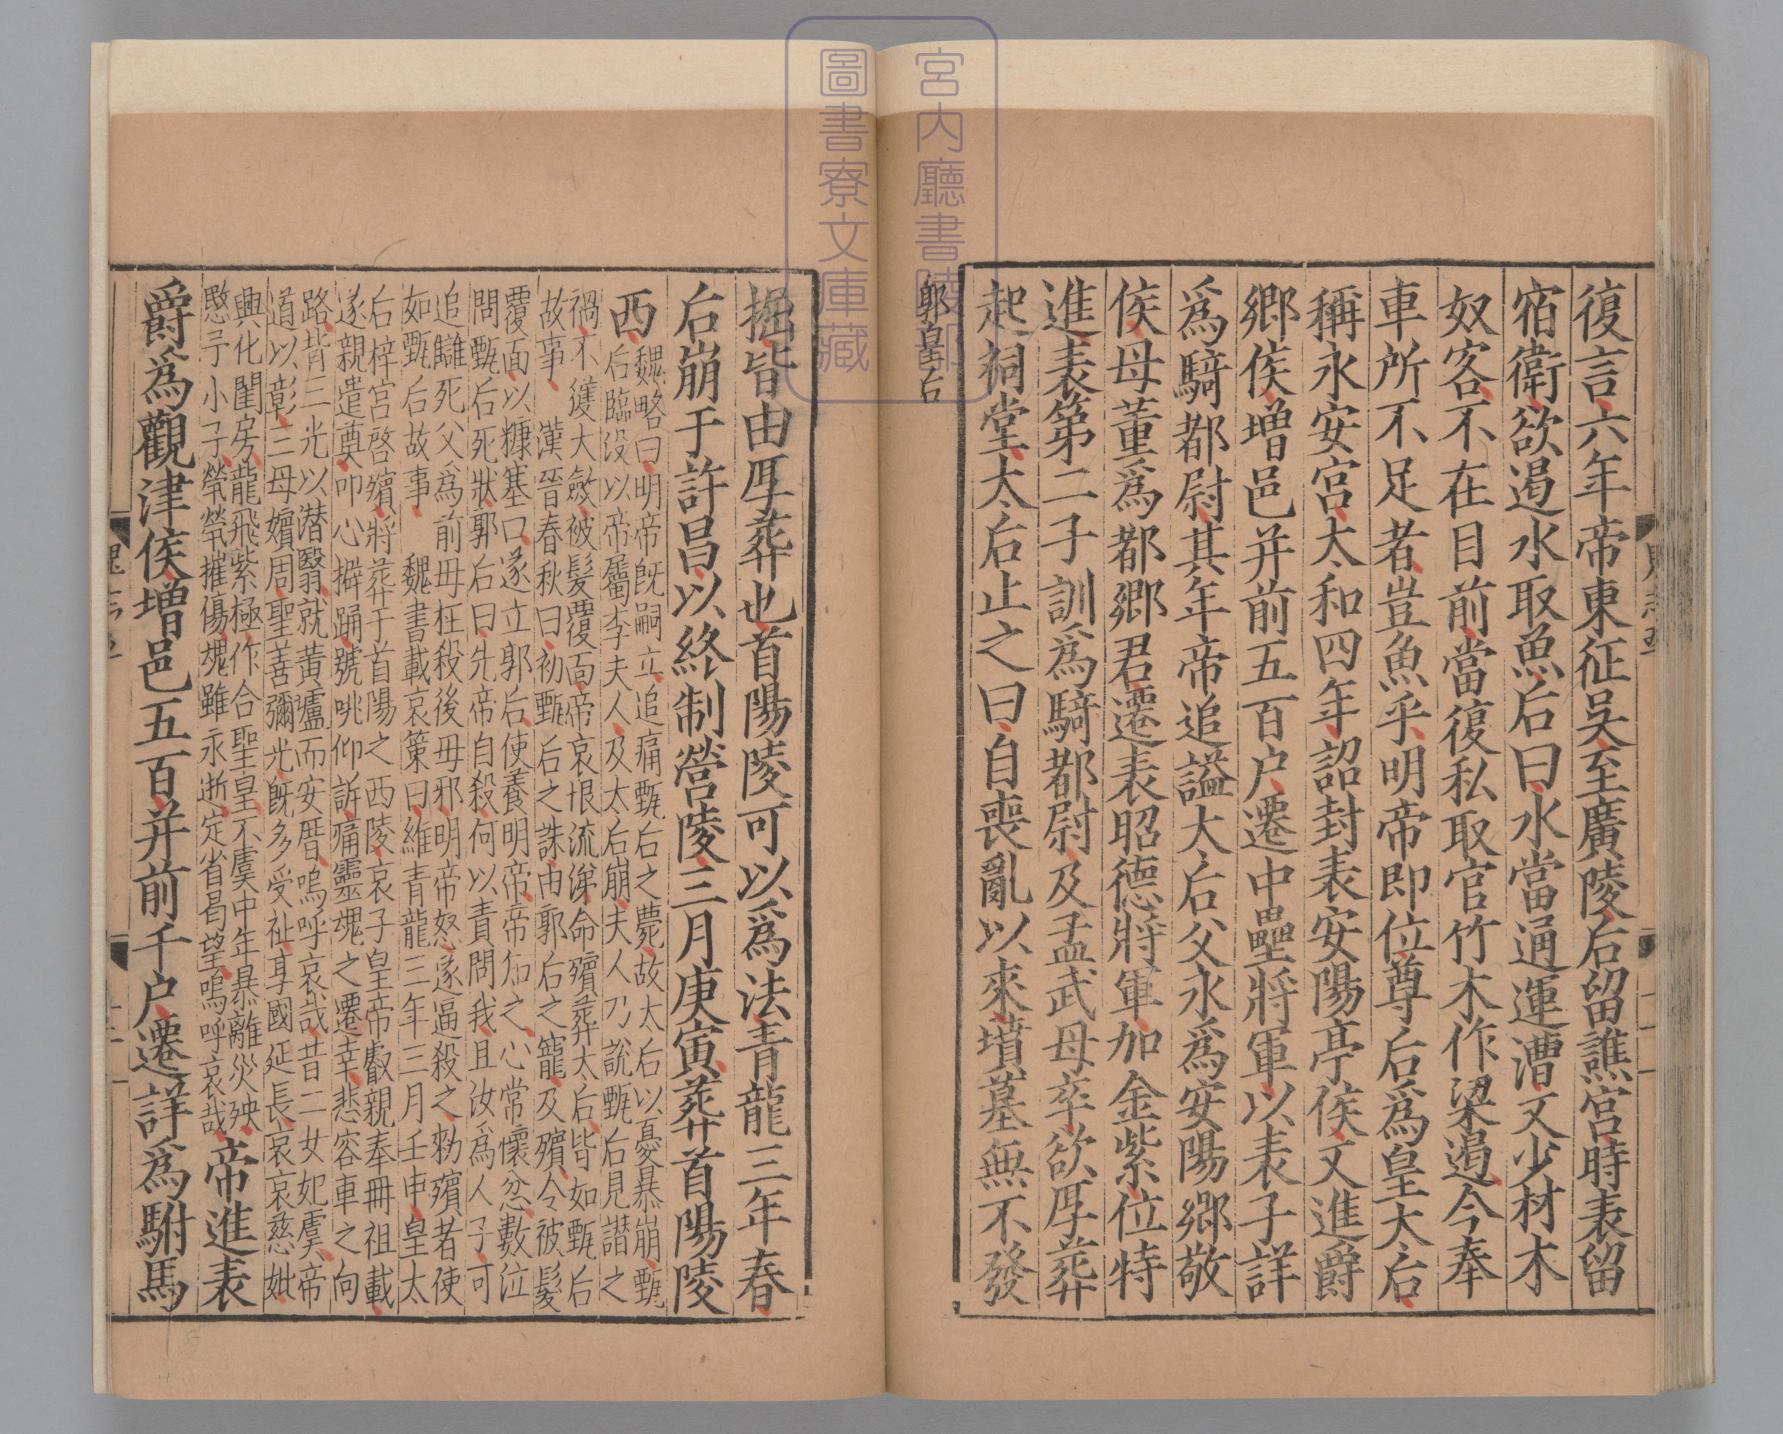 復言六年帝東征吳至廣陵后留譙宮時表留
宿衛欲遏水取魚后曰水當通運漕又少材木
奴客不在目前當復私取官竹木作梁遏今奉
車所不足者豈魚乎明帝即位尊后爲皇太后
稱永安宮太和四年詔封表安陽亭侯又進爵
鄉侯增邑并前五百户遷中壘將軍以表子詳
爲騎都尉其年帝追謚太后父永爲安陽鄉敬
侯母董爲都鄉君遷表昭德將軍加金紫位特
進表第二子訓爲騎都尉及孟武母卒欲厚葬
起祠堂太后止之曰自喪亂以來墳墓無不發
郭皇后
掘皆由厚葬也首陽陵可以爲法青龍三年春
后崩于許昌以終制營陵三月庚寅葬首陽陵
西
魏略曰明帝既嗣立追痛甄后之薨故太后以憂暴崩甄
后臨沒以帝屬李夫人及太后崩夫人乃說甄后見譖之
禍不獲大斂被髮覆面帝哀恨流涕命殯葬太后皆如甄后
故事 漢晉春秋曰初甄后之誅由郭后之寵及殯令被髮
覆面以糠塞口遂立郭后使養明帝帝知之心常懷忿數泣
問甄后死狀郭后曰先帝自殺何以責問我且汝爲人子可
追讎死父爲前母枉殺後母邪明帝怒遂逼殺之勑殯者使
如甄后故事 魏書載哀策曰維青龍三年三月壬申皇太
后梓宮啓殯將葬于首陽之西陵哀子皇帝叡親奉冊祖載
遂親遣奠叩心擗踊號咷仰訴痛靈魂之遷幸悲容車之向
路背三光以潛翳就黃壚而安厝嗚呼哀哉昔二女妃虞帝
道以彰三母嬪周聖善彌光既多受祉享國延長哀哀慈妣
興化閨房龍飛紫極作合聖皇不虞中年暴離災殃
愍予小子煢煢摧傷魂雖永逝定省曷望嗚呼哀哉
帝進表
爵爲觀津侯增邑五百并前千户遷詳爲駙馬
宮内廳書陵部
圖書寮文庫藏